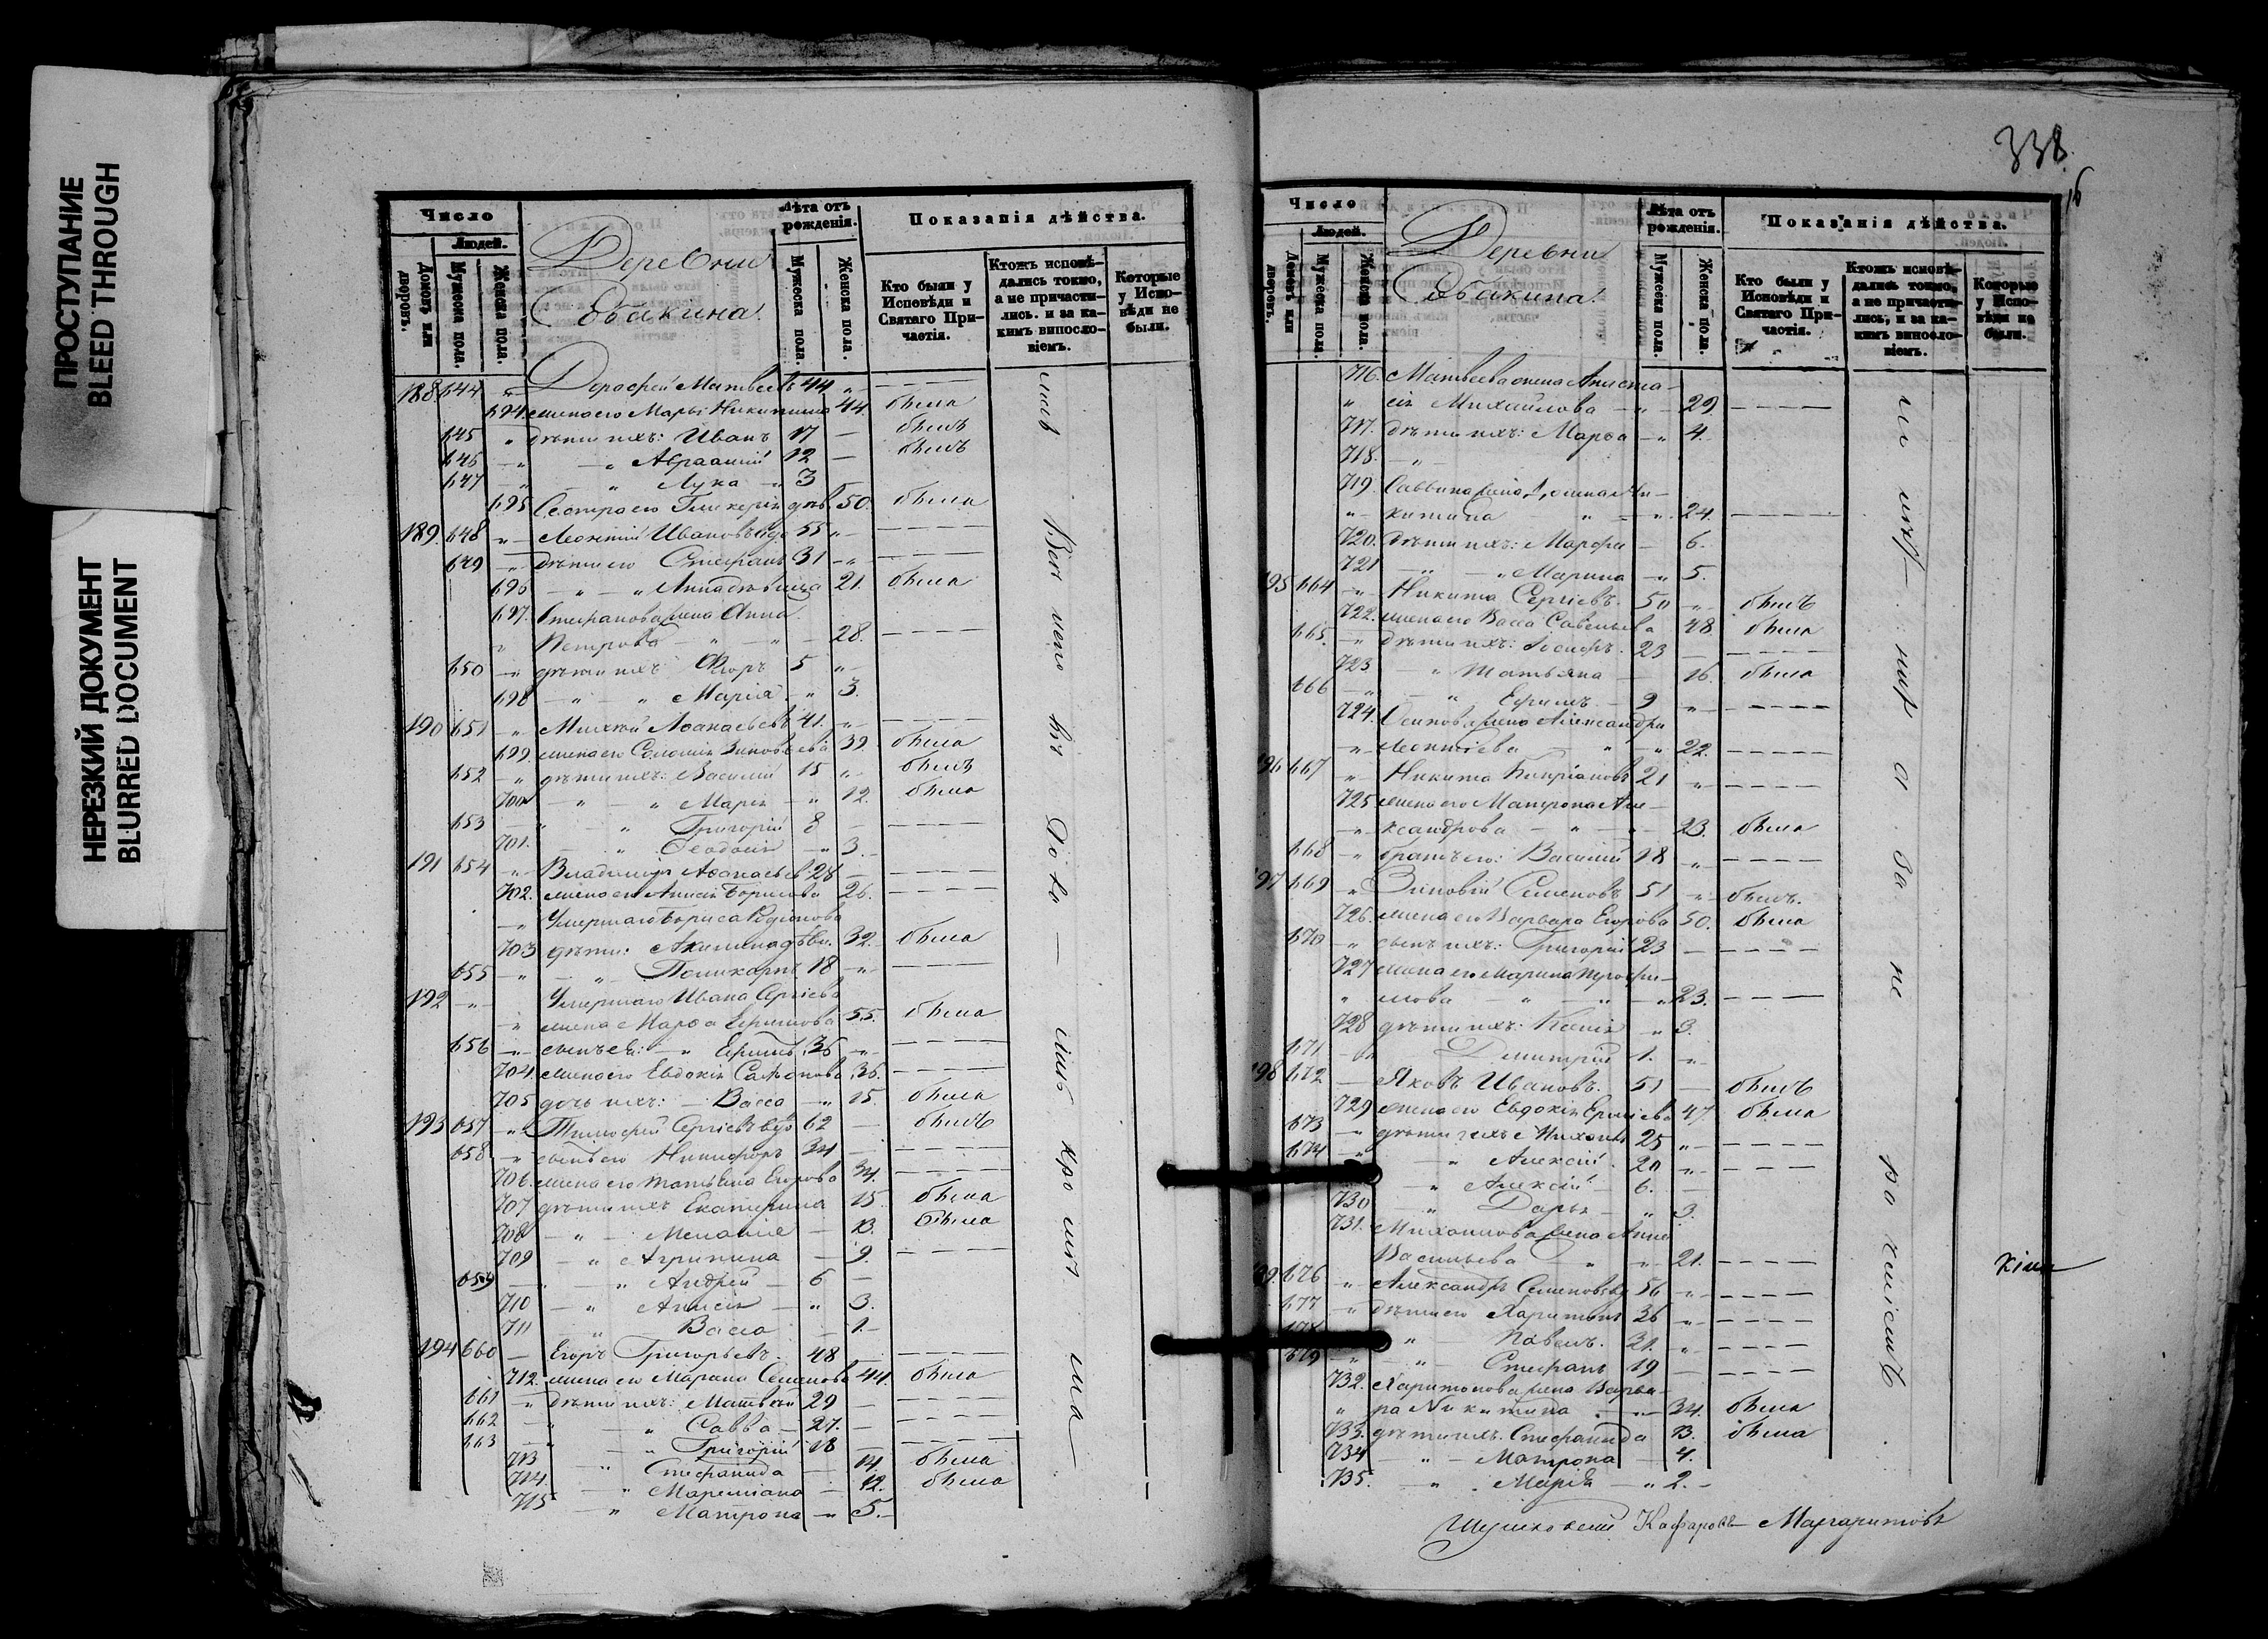 ПРОСТУПАНИЕ
BLEED THROUGH
НЕРЕЗКИЙ ДОКУМЕНТ
BLURRED DOCUMENT
Число
Людей.
Домовъ или дворовъ.
Мужеска пола.
Женска пола.
Деревни
Лѣта отъ рожденія.
Мужеска пола.
Женска пола.
Показанія дѣйства.
Кто были у Исповѣди и Святаго При-
частія.
Ктожъ исповѣ-
дались токмо,
а не причасти-
лись. и за ка-
кимъ випосло-
віемъ.
Которые
у Испо-
вѣди не
были.
188. 644 Дорофей Матвеевъ 44
694. жена его Марья Никитина 44. была
645 дѣти ихъ: Иванъ 17 — былъ
646 Авраамій 12 — былъ
647 Лука 3
695 Сестра его Гликерія дѣв. 50. была
189. 648 Леонтій Ивановъ вдо 55
649 дѣти его Стефанъ 31
696 Анна дѣвица 21. была
697. Стефанова жена Анна
Петрова 28.
650 дѣти ихъ Ѳ
698 Марія 3.
190 651 Аѳанасьевъ 41.
699 жена его Соломія Зиновьева 39. была
652 дѣти ихъ: Василій 15 былъ
700 Марія 12. была
653 Григорій 8
701. Ѳеодосія 3.
191 654 Владимиръ Аѳанасьев. 28
702. жена его Анисія Борисова 26.
Умершаго Бориса Родіонова
703 дѣти: Акилина дѣви. 32. была
655 Поликарпъ 18
192 Умершаго Ивана Сергіева
жена Марѳа Ефимова 55. была
656 сынъ ев: Ефимъ 36
704. жена его Евдокія 36.
705 дочь ихъ: Васса 15. была
193 657 Тимофей Сергіевъ вдо 62 былъ
658 сынъ его Никифоръ 34
706. жена его Татьяна Егорова 34.
707 дѣти ихъ Екатерина 15 была
708 Меланія 13. была
709 Агрипина 9.
659 Андрей 6
710 Анисія 3.
711 Васса 1.
194 660 Егоръ Григорьевъ 48
712. жена его Марина Семенова 44. была
661 дѣти ихъ: Матвей 29
662 Савва 27.
663 Григорій 18
713 Стефанида 14. была
714 Мареміана 12. была
715 Матрона 5.
338.
Число
Людей.
Домовъ или дворовъ.
Мужеска пола.
Женска пола.
Деревни
Лѣта отъ рожденія.
Мужеска пола.
Женска пола.
Показанія дѣйства.
Кто были у Исповѣди и Святаго При-
частія.
Ктожъ исповѣ-
дались токмо,
а не причасти-
лись, и за ка-
кимъ випосло-
віемъ.
Которые
у Испо-
вѣди не
были.
716. Матвеева жена Анаста-
сія Михайлова 29.
717. дѣти ихъ: Марѳа 4.
718.
719. Саввина жена
китина 24.
720. дѣти ихъ: Марфа 6.
721 Марина 5.
195 664 Никита Сергіевъ 50 былъ
722. жена его Васса Савельева 48. была
665. дѣти ихъ: Іосифъ 23
723 Татьяна 16. была
666 Ефимъ 9
724. Осипова жена Александра
Леонтіева 22.
196 667 Никита Кипріановъ 21
725. жена его Матрона Але-
ксандрова 23. была
668 братъ его: Василій 18
197 669 Зиновій Семеновъ 51 былъ.
726. жена его Варвара Егорова 50. была
670 сынъ ихъ: Григорій 23
727 жена его Марина Трофи-
мова 23.
728 дѣти ихъ: Ксенія 3.
671 Димитрій 1.
198 672 Яковъ Ивановъ. 51 былъ
729 жена его Евдокія 47 была
673 дѣти ихъ 25
674 Алексій 20
Алексій 6.
730 Дарья 3.
731. жена Анна
Васильева 21.
199. 676 Александръ Семеновъ вд 56
677 дѣти его Харитонъ 36
678 Павелъ. 21.
679 Стефанъ 19
732. Харитонова жена Варва-
ра Никитина 34. была
733. дѣти ихъ. Стефанида 13. была
734 Матрона 4.
735. Марія 2.
Маргаритовъ